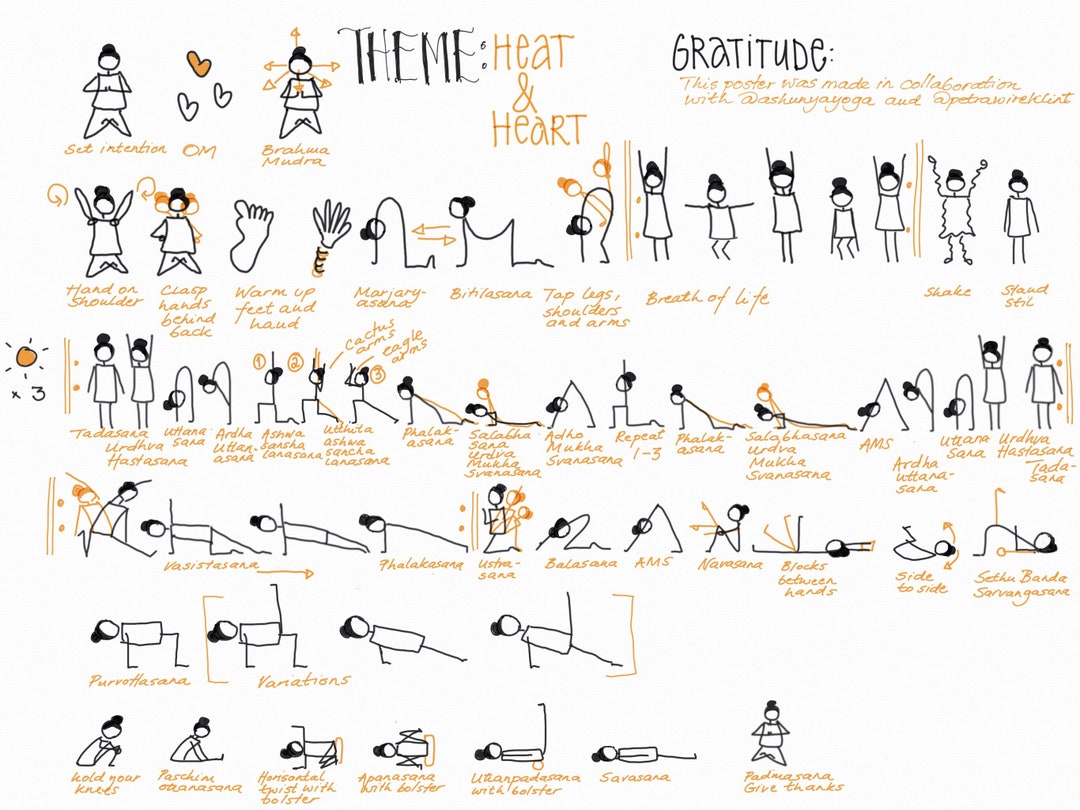 THEME: HEAT
&
HEART
GRATITUDE:
This poster was made in collaboration
with @ashunyayoga and @petrawireklint
Set intention
OM
Brahma
Mudra
Hand on
shoulder
Clasp
hands
behind
back
Warm up
feet and
hand
Marjary-
asana
Bitilasana
Tap legs,
shoulders
and arms
Breath of life
Shake
Stand
stil
x 3
1
2
3
cactus
arms
eagle
arms
Tadasana
Urdhva
Hastasana
Uttana-
sana
Ardha
Uttan-
asana
Ashwa
sansha
lanasana
Utthita
ashwa
sancha
lanasana
Phalak-
asana
Salabha
sana
Urdva
Mukha
Svanasana
Adho
Mukha
Svanasana
Repeat
1-3
Phalak-
asana
Salabhasana
Urdva
Mukha
Svanasana
AMS
Ardha
Uttana-
sana
Uttana
sana
Urdhva
Hastasana
Tada-
sana
Vasistasana
Phalakasana
Ustra-
sana
Balasana
AMS
Navasana
Blocks
between
hands
Side
to side
Sethu Banda
Sarvangasana
Purvottasana
Variations
Hold your
knees
Paschim
ottanasana
Horisontal
twist with
bolster
Apanasana
with bolster
Uttanpadasana
with bolster
Savasana
Padmasana
Give thanks